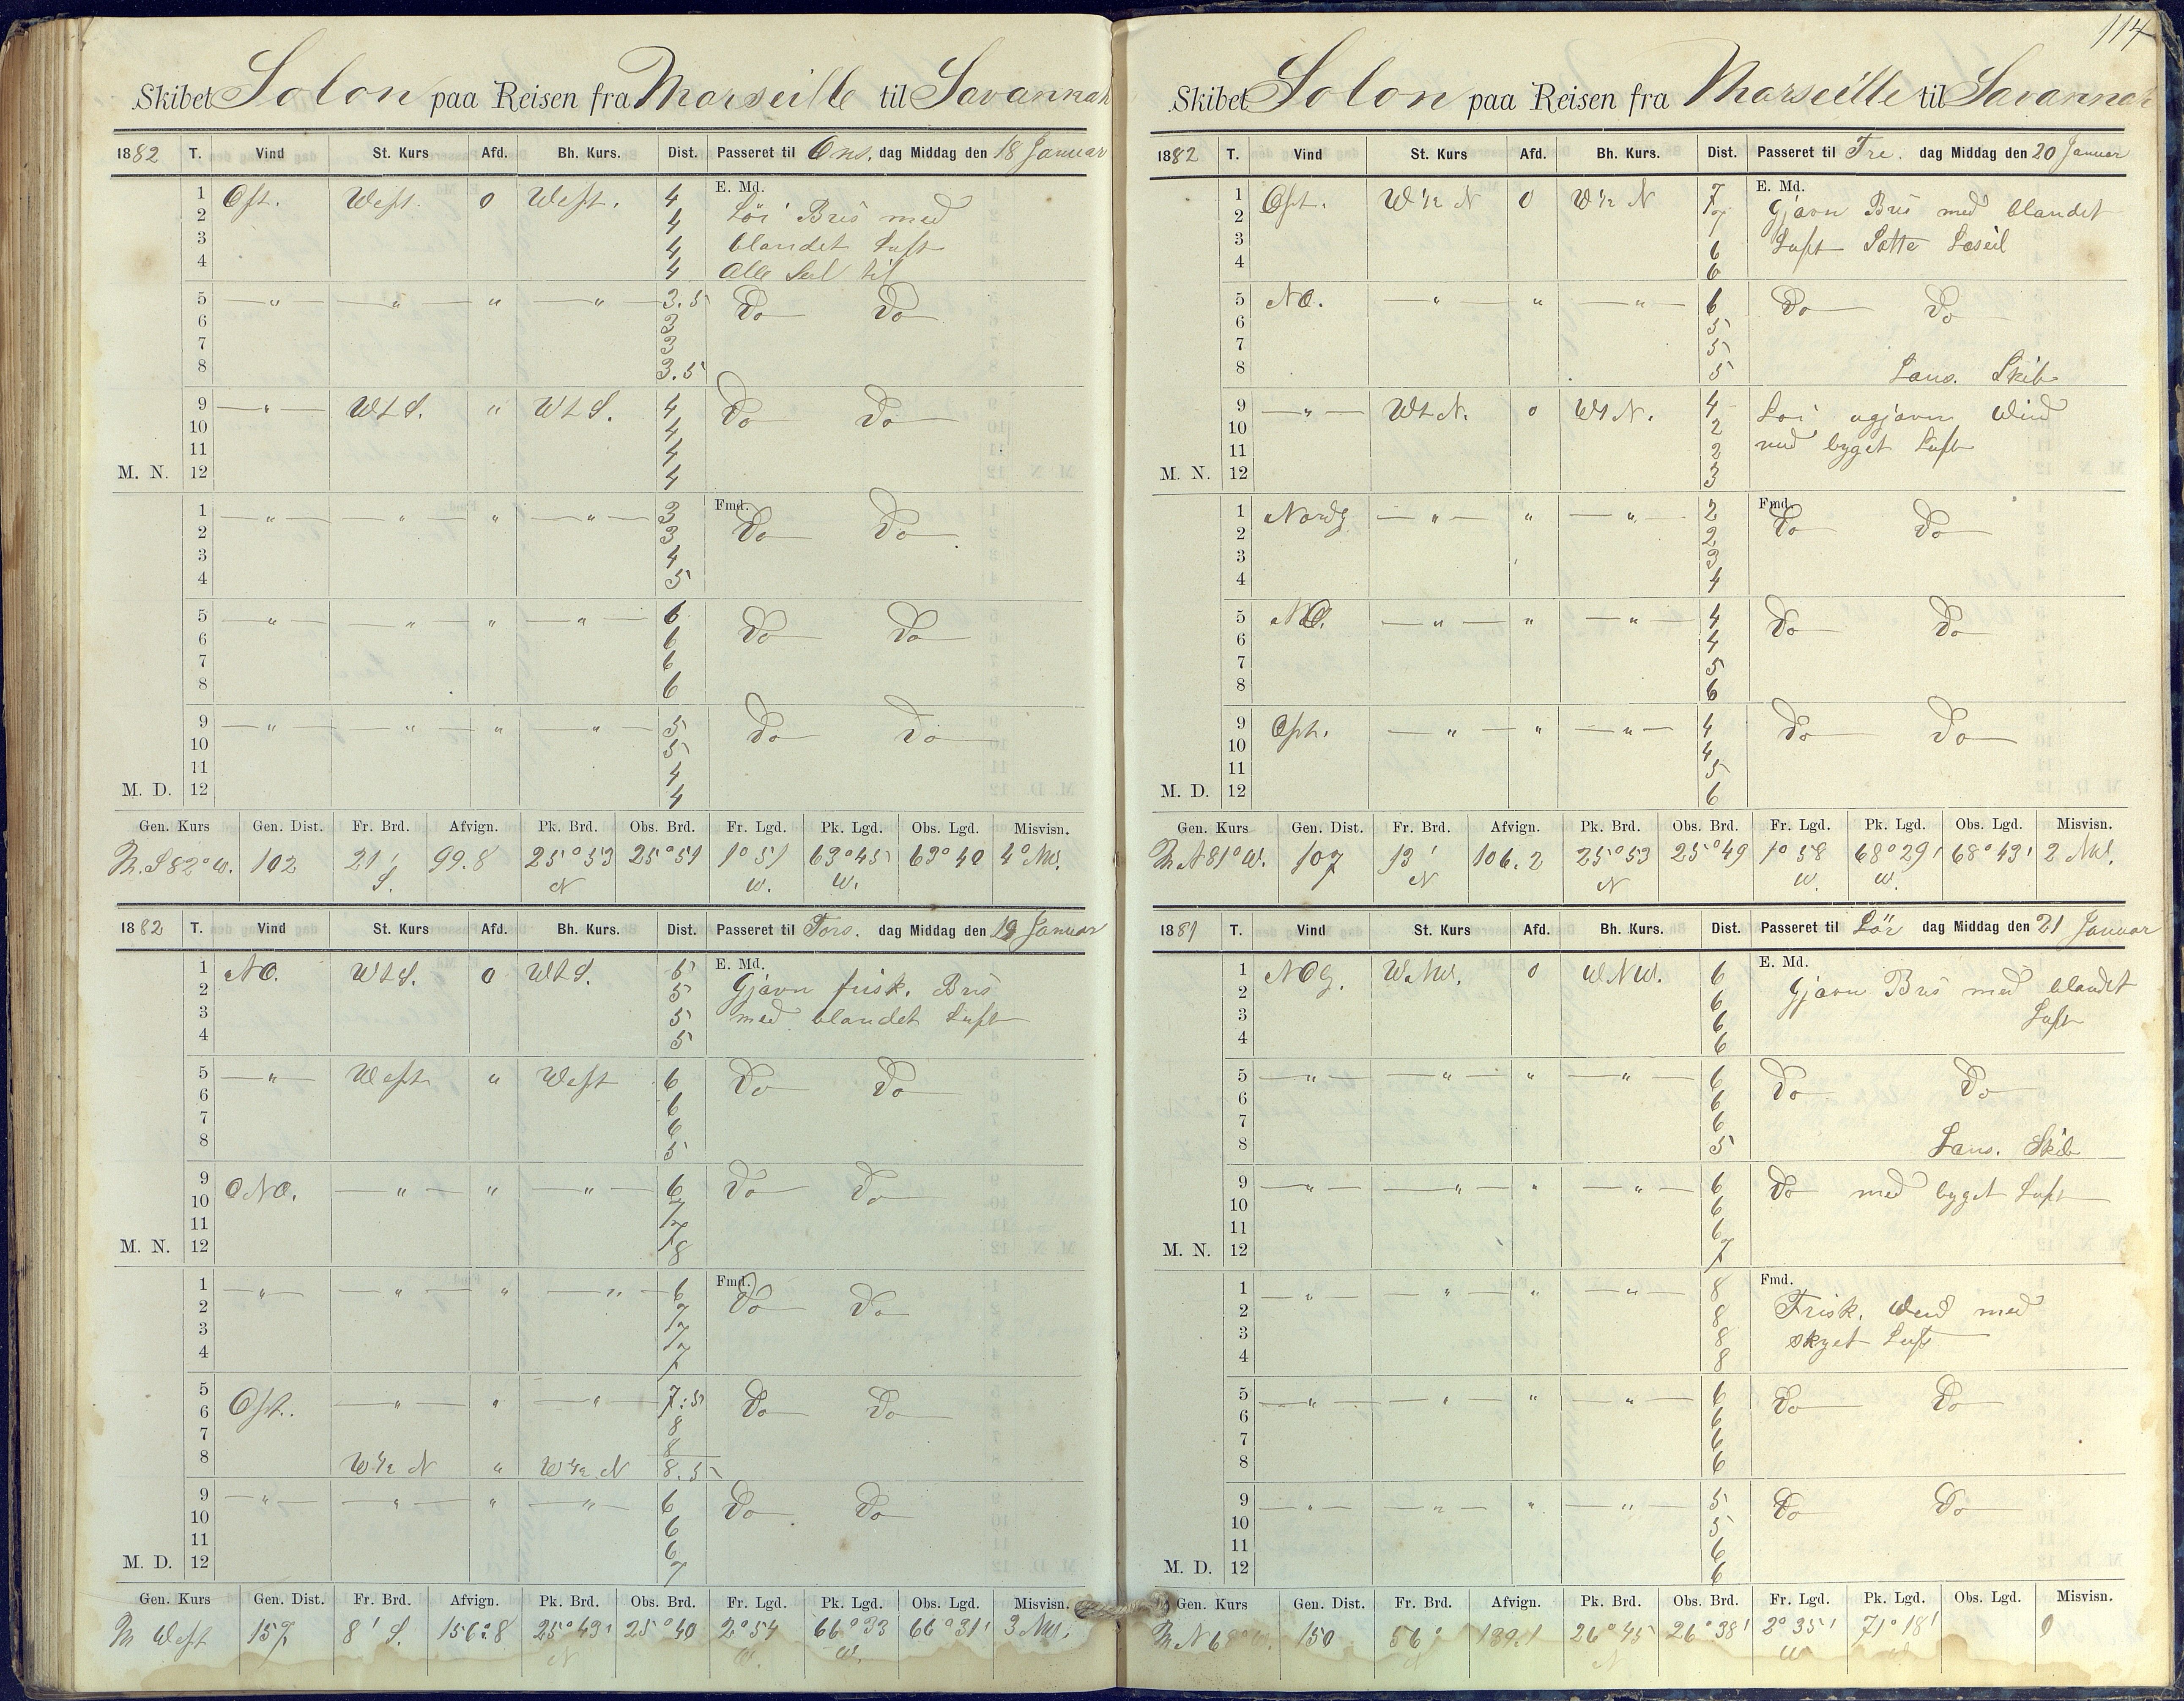 114
Skibet Solon paa Reisen fra Marseille til Savannah
1882 T. Vind St. Kurs Afd. Bh. Kurs. Dist. Passeret til Ons. dag Middag den 18 Januar
E. Md.
1 Ost. West. 0 West. 4 Lör Bris med
2 4
3 4 blandet Luft
4 4 Alle Seil til
5 — " — — " — " — " — 3.5 Do Do
6 3
7 3
8 3.5
9 — " — Wt S. " Wt S. 4 Do Do
10 4
11 4
M. N. 12 4
Fmd.
1 — " — — " — " — " — 3 Do Do
2 3
3 4
4 5
5 — " — — " — " — " — 6 Do Do
6 6
7 6
8 6
9 — " — — " — " — " — 5 Do Do
10 5
11 4
M. D. 12 4
Gen. Kurs Gen. Dist. Fr. Brd. Afvign. Pk. Brd. Obs. Brd. Fr. Lgd. Pk. Lgd. Obs. Lgd. Misvisn.
M. S 82° W. 102 21' S. 99.8 25°53 N 25°51 1°51 W. 63°45 W. 63°40 4° NW.
1882 T. Vind St. Kurs Afd. Bh. Kurs. Dist. Passeret til Tors. dag Middag den 19 Januar
E. Md.
1 NO. Wt S. 0 Wt S. 5 Gjævn frisk. Bris
2 5
3 5 med blandet Luft
4 5
5 — " — West " West 6 Do Do
6 6
7 6
8 5
9 ONO. — " — " — " — 6 Do Do
10 7
11 7
M. N. 12 8
Fmd.
1 — " — — " — " — " — 6 Do Do
2 7
3 7
4 7
5 Ost. — " — " — " — 7.5 Do Do
6 8
7 8
8 W 1/2 N " W 1/2 N 8.5
9 — " — — " — " — " — 6 Do Do
10 6
11 6
M. D. 12 7
Gen. Kurs Gen. Dist. Fr. Brd. Afvign. Pk. Brd. Obs. Brd. Fr. Lgd. Pk. Lgd. Obs. Lgd. Misvisn.
M West 157 8' S. 156.8 25°43' N 25°40 2°54 W. 66°33 W. 66°31' 3 NW.
Skibet Solon paa Reisen fra Marseille til Savannah
1882 T. Vind St. Kurs Afd. Bh. Kurs. Dist. Passeret til Fre. dag Middag den 20 Januar
E. Md.
1 Ost. W 1/2 N 0 W 1/2 N 7 Gjævn Bris med blandet
2 7
3 6 Luft Satte Læseil
4 6
5 NO. — " — " — " — 6 Do Do
6 5
7 5
8 5 Lans. Skib
9 — " — Wt N. 0 Wt N. 4 Lör ugjævn Wind
10 2
11 2 med byget Luft
M. N. 12 3
Fmd.
1 Nordg — " — " — " — 2 Do Do
2 2
3 3
4 4
5 NO. — " — " — " — 4 Do Do
6 4
7 5
8 6
9 Ost. — " — " — " — 4 Do Do
10 4
11 5
M. D. 12 6
Gen. Kurs Gen. Dist. Fr. Brd. Afvign. Pk. Brd. Obs. Brd. Fr. Lgd. Pk. Lgd. Obs. Lgd. Misvisn.
M N 81° W. 107 13' N 106.2 25°53 N 25°49 1°58 W. 68°29' W. 68°43' 2 NW.
1881 T. Vind St. Kurs Afd. Bh. Kurs. Dist. Passeret til Lör dag Middag den 21 Januar
E. Md.
1 NOg. WNW. 0 WNW. 6 Gjævn Bris med blandet
2 6
3 6 Luft
4 6
5 — " — — " — " — " — 6 Do Do
6 6
7 6
8 5 Lans. Skib
9 — " — — " — " — " — 6 Do med byget Luft
10 6
11 6
M. N. 12 7
Fmd.
1 — " — — " — " — " — 8 Frisk. Wind med
2 8
3 8 skyet Luft
4 8
5 — " — — " — " — " — 6 Do Do
6 6
7 6
8 6
9 — " — — " — " — " — 5 Do Do
10 5
11 6
M. D. 12 6
Gen. Kurs Gen. Dist. Fr. Brd. Afvign. Pk. Brd. Obs. Brd. Fr. Lgd. Pk. Lgd. Obs. Lgd. Misvisn.
M N 68° W. 150 56' N 139.1 26°45 N 26°38' 2°35' W 71°18' W 0